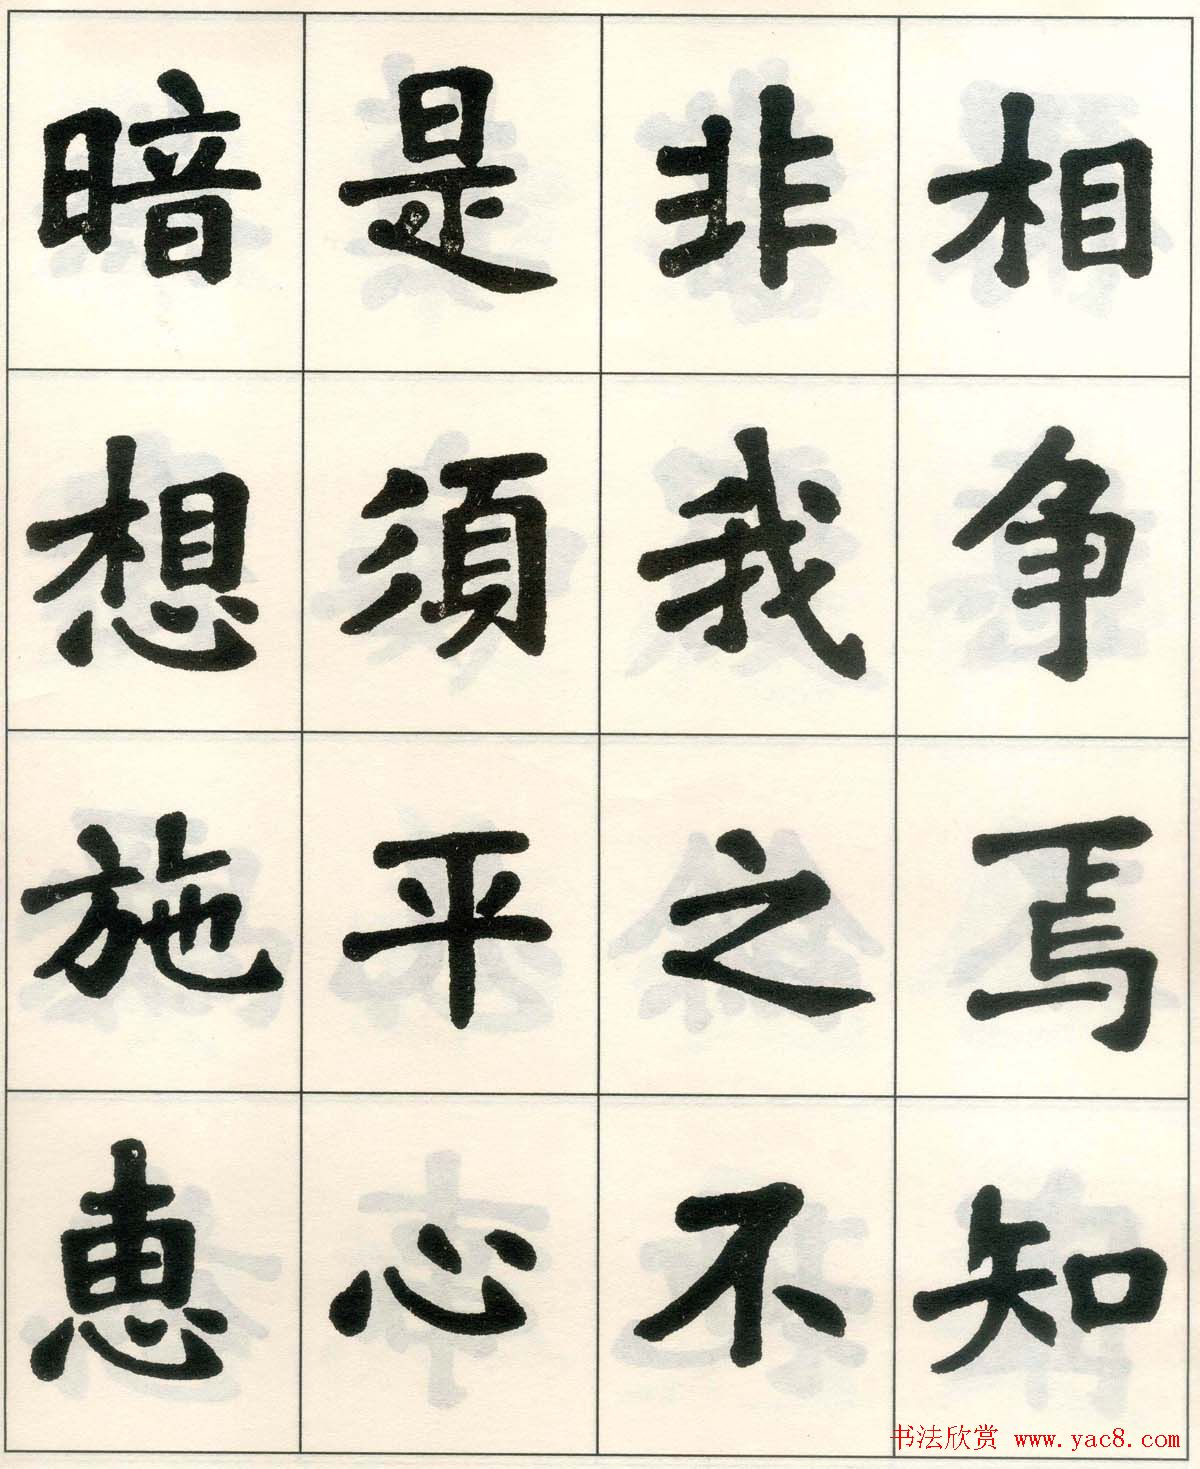 相争焉知
非我之不
是須平心
暗想施恵
书法欣赏 www.yac8.com